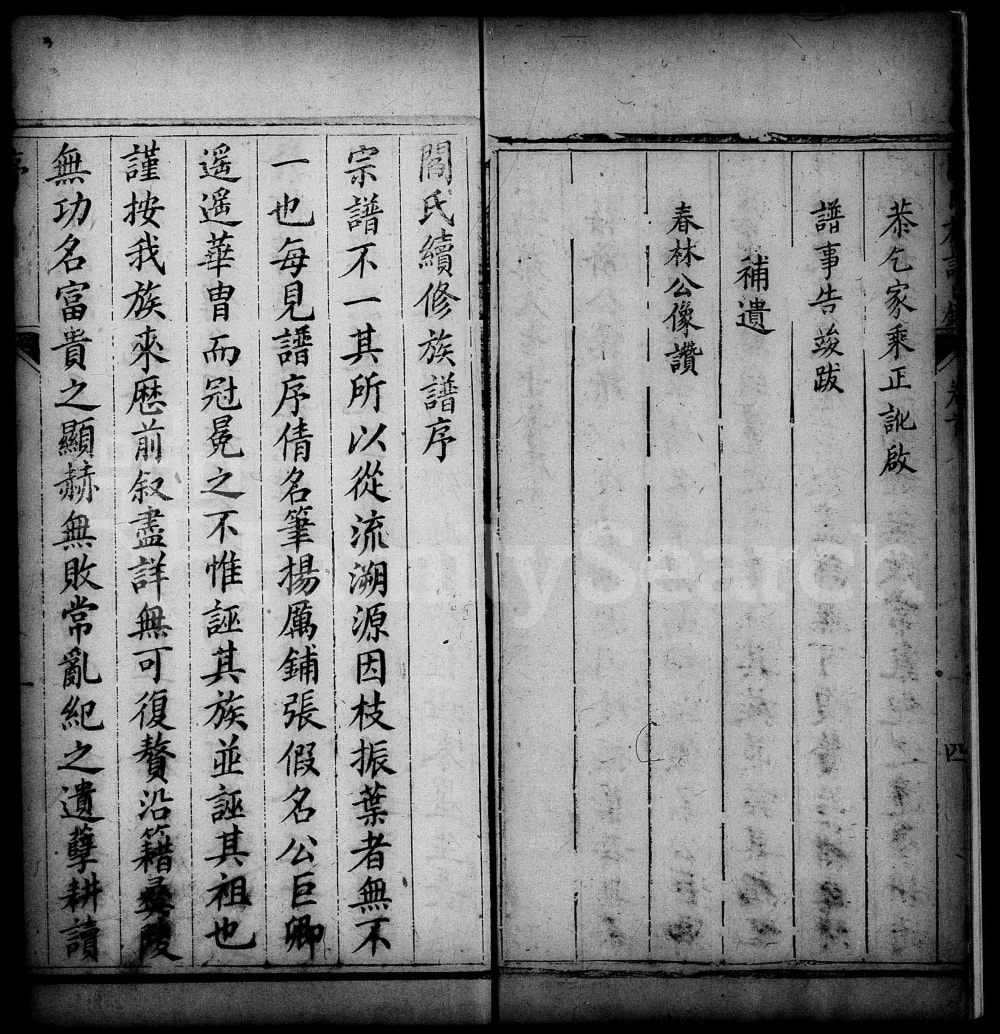 恭乞家乘正訛啟
譜事告竣跋
補遺
春林公像讚
四
閻氏續修族譜序
宗譜不一其所以從流溯源因枝振葉者無不
一也每見譜序倩名筆揚厲鋪張假名公巨卿
遥遥華胄而冠冕之不惟誣其族並誣其祖也
謹按我族來歴前叙盡詳無可復贅沿籍彛陵
無功名富貴之顯赫無敗常亂紀之遺孽耕讀
序
一